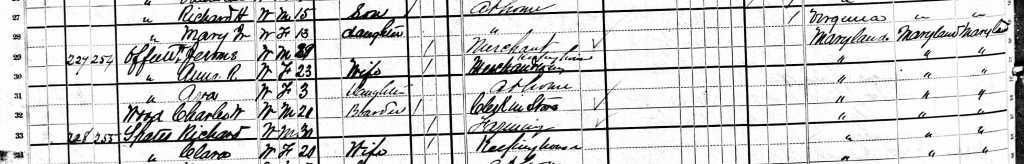 27 " Richard H W M 15 Son At home 1 Virginia " "
28 " Mary W F 13 Daughter " Maryland Maryland Maryland
29 227 254 Offutt Jerome W M 29 1 Merchant " " "
30 " Anna R. W F 23 Wife 1 Keeping house " " "
31 " Dora W F 3 Daughter At home " " "
32 Wood Charles W M 20 Boarder 1 Clerk in Store " " "
33 228 255 Spates Richard W M 30 1 Farming " " "
34 " Clara W F 20 Wife 1 Keeping house " " "
At home